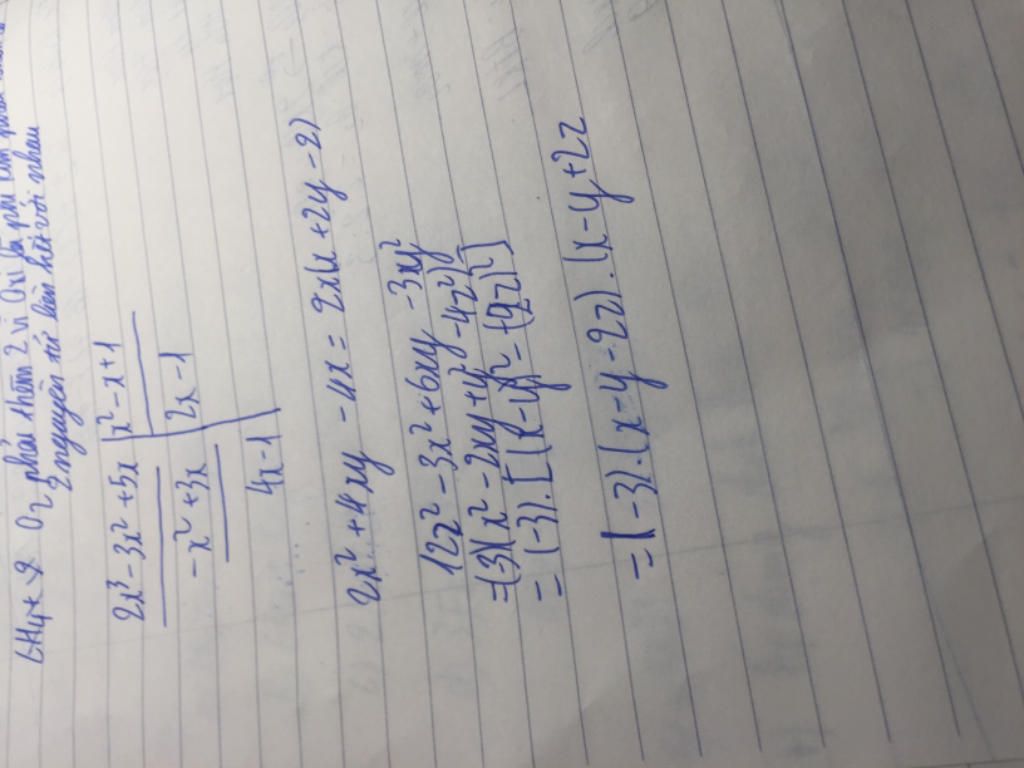 CH4 + 2 O2 phải thêm 2 vì oxi la phải
2 nguyên tử liên kết với nhau
2x³ - 3x² + 5x | x² - x + 1
- x² + 3x | 2x - 1
4x - 1
2x² + 4xy - 4x = 2x(x + 2y - 2)
12z² - 3x² + 6xy - 3y²
=(3)(x² - 2xy + y² - 4z²)
= (-3).[(x-y)² - (2z)²]
= (-3).(x-y-2z).(x-y+2z